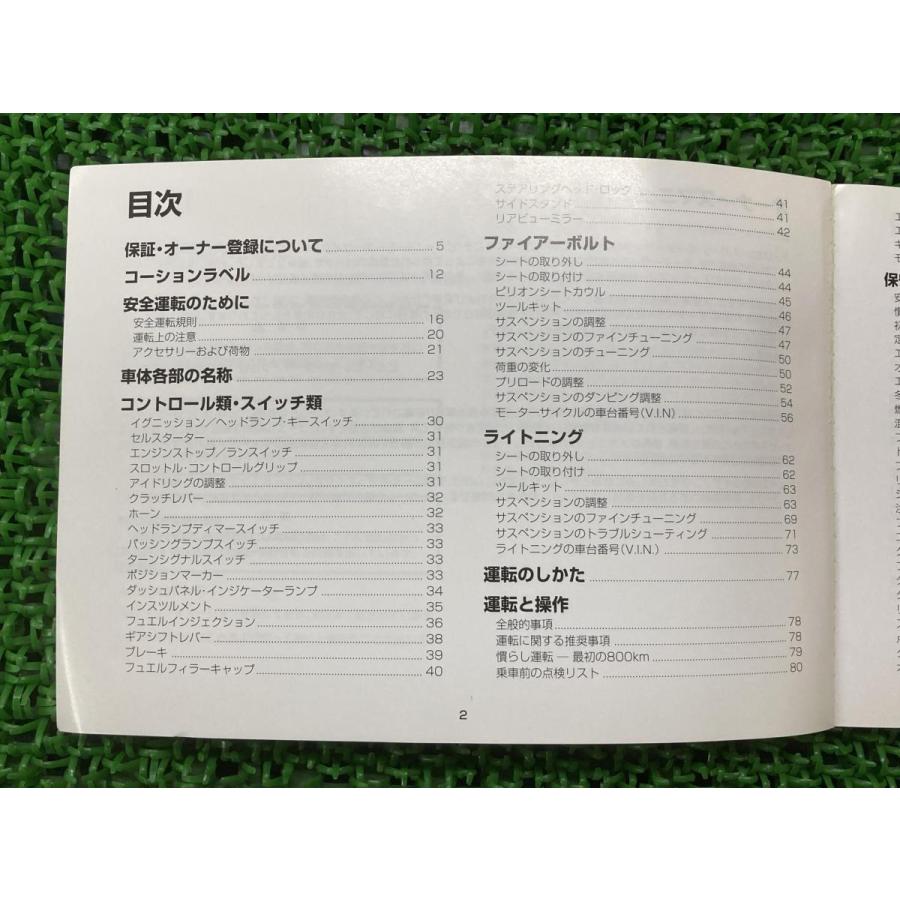 目次
保証・オーナー登録について 5
コーションラベル 12
安全運転のために
安全運転規則 16
運転上の注意 20
アクセサリーおよび荷物 21
車体各部の名称 23
コントロール類・スイッチ類
イグニッション／ヘッドランプ・キースイッチ 30
セルスターター 31
エンジンストップ／ランスイッチ 31
スロットル・コントロールグリップ 31
アイドリングの調整 31
クラッチレバー 32
ホーン 32
ヘッドランプディマースイッチ 33
パッシングランプスイッチ 33
ターンシグナルスイッチ 33
ポジションマーカー 33
ダッシュパネル・インジケーターランプ 34
インスツルメント 35
フュエルインジェクション 36
ギアシフトレバー 38
ブレーキ 39
フュエルフィラーキャップ 40
ステアリングヘッド・ロック 41
サイドスタンド 41
リアビューミラー 42
ファイアーボルト
シートの取り外し 44
シートの取り付け 44
ピリオンシートカウル 45
ツールキット 46
サスペンションの調整 47
サスペンションのファインチューニング 47
サスペンションのチューニング 50
荷重の変化 50
プリロードの調整 52
サスペンションのダンピング調整 54
モーターサイクルの車台番号（V.I.N） 56
ライトニング
シートの取り外し 62
シートの取り付け 62
ツールキット 63
サスペンションの調整 63
サスペンションのファインチューニング 69
サスペンションのトラブルシューティング 71
ライトニングの車台番号（V.I.N.） 73
運転のしかた 77
運転と操作
全般的事項 78
運転に関する推奨事項 78
慣らし運転 — 最初の800km 79
乗車前の点検リスト 80
2